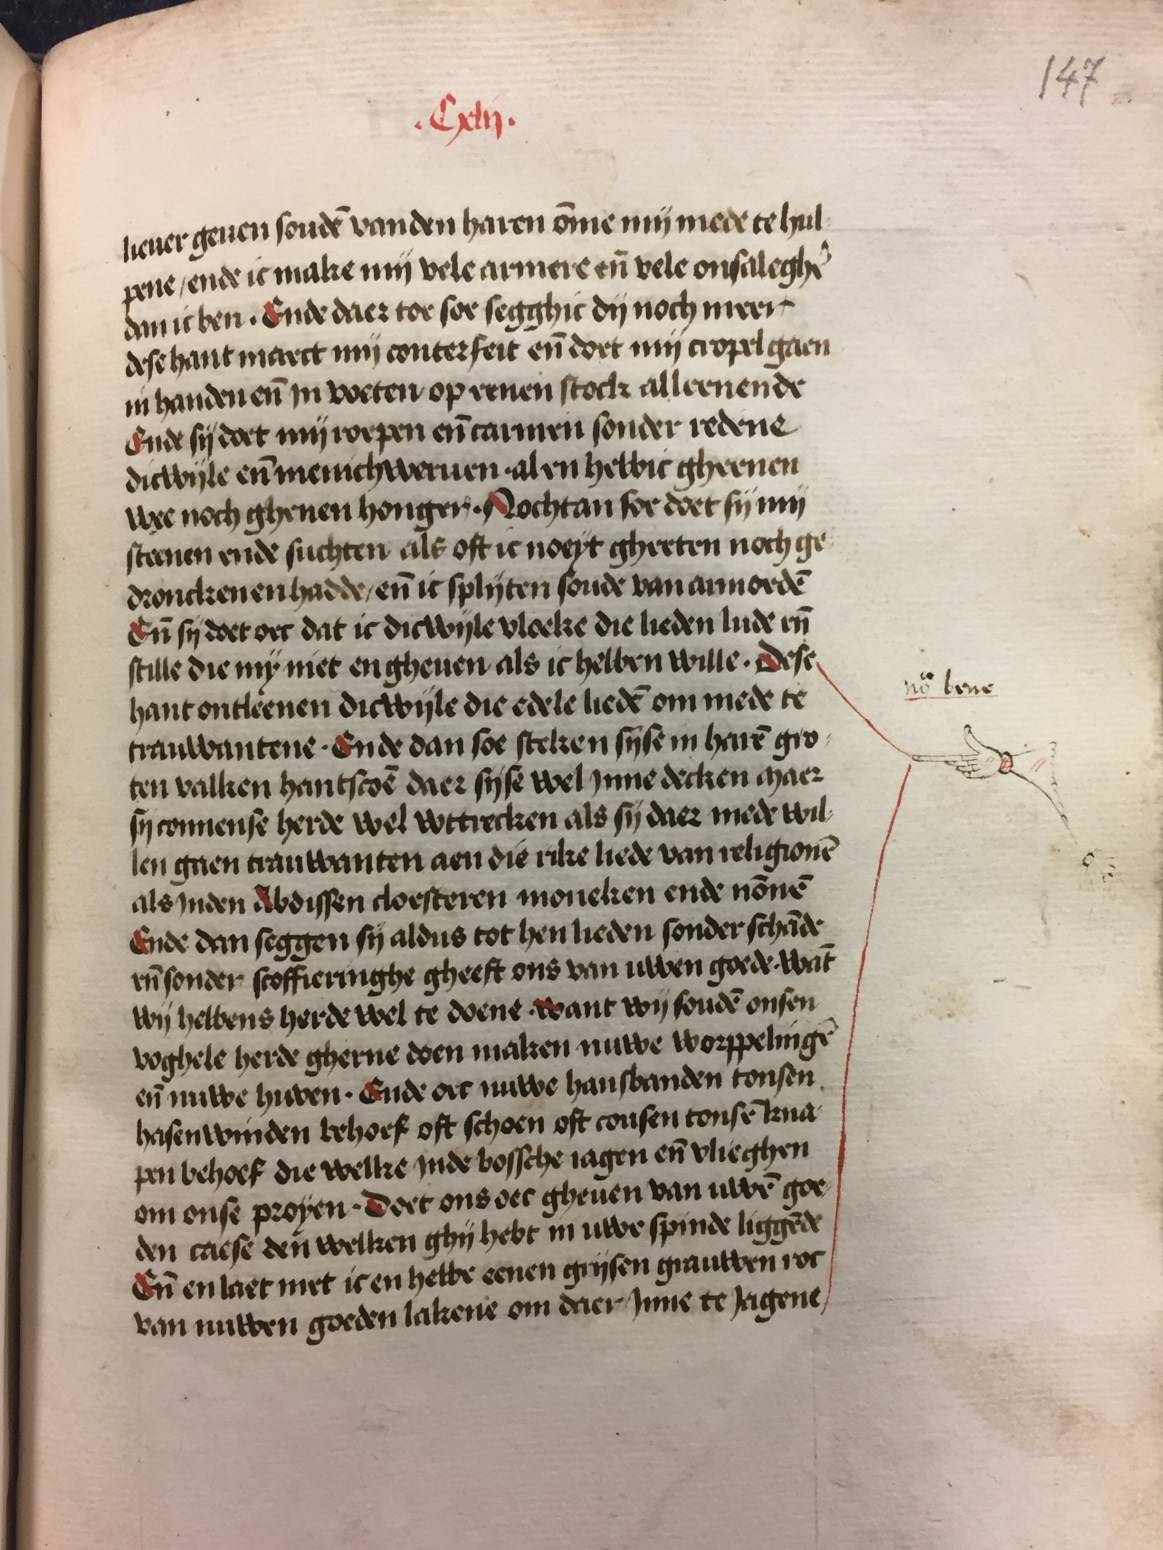 147
.Cxlij.
lieuer geuen soudē vanden haren ōme mij mede te hul
pene / ende ic make mij vele armere eñ vele onsaleghe͛
dan ic ben . Ende daer toe soe segghic dij noch meer
dese hant maect mij conterfeit eñ doet mij cropel gaen
in handen eñ in voeten op eenen stock alleenende
Ende sij doet mij roepen eñ carmen sonder redene
dicwijle eñ menichweruen · al en hebbic gheenen
wee noch ghenen honger · Nochtan soe doet sij mij
steenen ende suchten als oft ic noeyt gheeten noch ge
dronckenen hadde / eñ ic splijten soude van armoedē
Eñ sij doet oec dat ic dicwijle vloeke die lieden lude eñ
stille die mij niet en gheuen als ic hebben wille . Dese
nō bene
hant ontleenen dicwijle die edele liedē om mede te
trauwantene · Ende dan soe steken sijse in harē gro
ten valken hantscoē daer sijse wel inne decken maer
sij connense herde wel wttrecken als sij daer mede wil
len gaen trauwanten aen die rike liede van religionē
als inden Abdissen cloesteren moneken ende nōnē
Ende dan seggen sij aldus tot hen lieden sonder schāde
eñ sonder scoffieringhe gheeft ons van uwen goede · wāt
wij hebbens herde wel te doene · want wij soudē onsen
voghele herde gherne doen maken nuwe worppelingē
eñ nuwe huven · Ende oec nuwe hansbanden tonsen
hasenwinden behoef oft schoen oft cousen tonsē kna
pen behoef die welke inde bossche iagen eñ vlieghen
om onse proyen · Doet ons oec gheuen van uwē goe
den caese den welken ghij hebt in uwe spinde liggēde
Eñ en laet niet ic en hebbe eenen grijsen grauwen roc
van nuwen goeden lakene om daer inne te jagene